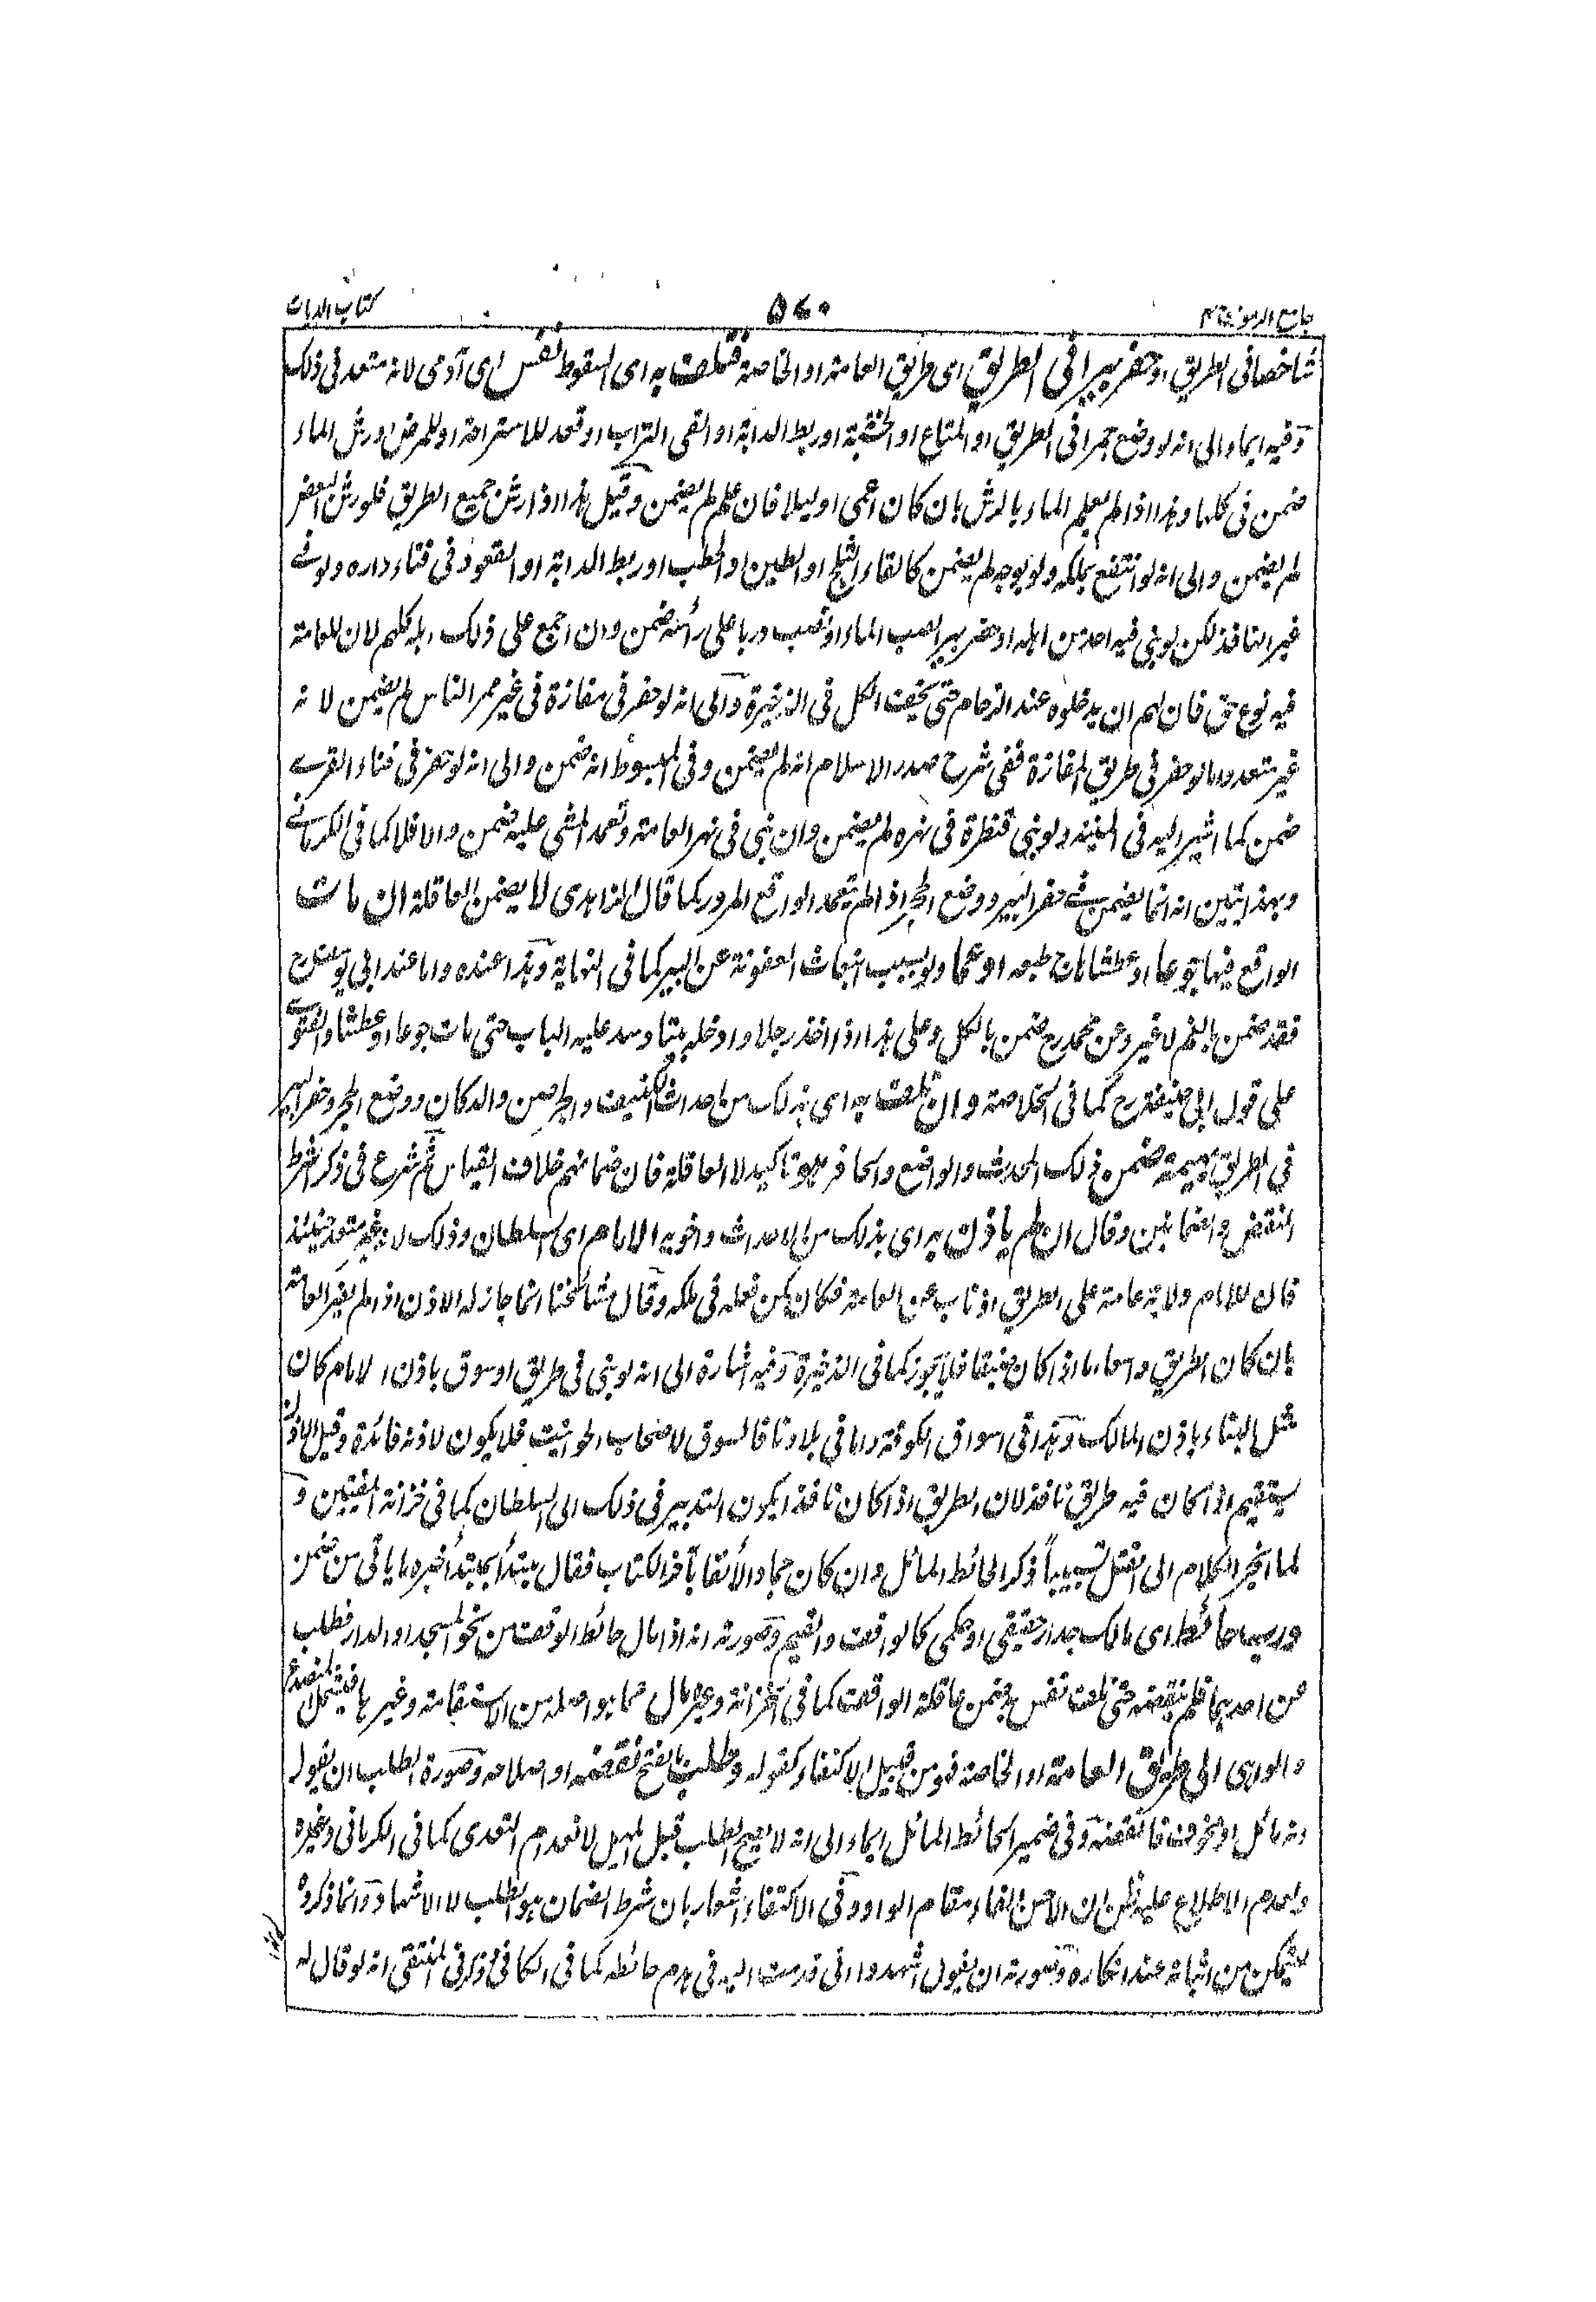 جامع الرموز
۵۶۰
كتاب الديات
شاخصا فى الطريق او حفر بيرا فى الطريق اى طريق العامة او الخاصة فتلفت به اى السقوط نفس اى آدمى لانه متعد فى ذلك
وفيه ايماء الى انه لو وضع حجرا فى الطريق او المتاع او الخشبة او ربط الدابة او القى التراب او قعد للاستراحة او للمرض او رش الماء
ضمن فى كلها وهذا اذا لم يعلم الماء بالرش بان كان اعمى او ليلا فان علم لم يضمن وقيل هذا اذا رش جميع الطريق فلو رش البعض
لم يضمن والى انه لو انتفع بملكه ولو بوجه لم يضمن كالقاء الثلج او الطين او الحطب او ربط الدابة او القعود فى فناء داره ولو فى
غير النافذ لكن لو بنى فيه احد من اهله او حفر بيرا لصب الماء او نصب دربا على رأسه ضمن وان اجمع على ذلك اهله كلهم لان للعامة
فيه نوع حق فان لهم ان يدخلوه عند الزحام حتى يخف الكل فى الذخيرة والى انه لو حفر فى مفازة فى غير ممر الناس لم يضمن لانه
غير متعد واما لو حفر فى طريق المفازة ففى شرح صدر الاسلام انه لم يضمن وفى المبسوط انه ضمن والى انه لو حفر فى فناء القرى
ضمن كما اشير اليه فى المنية ولو بنى قنطرة فى نهره لم يضمن وان بنى فى نهر العامة وتعمد المشى عليه فضمن والا فلا كما فى الكرمانى
وبهذا تبين انه انما يضمن فى حفر البير ووضع الحجر اذا لم يتعمد الواقع المرور كما قال الزاهدى لا يضمن العاقلة ان مات
الواقع فيها جوعا او عطشا لانه طبعه او غما ولو بسبب انبعاث العفونة عن البير كما فى النهاية وهذا عنده واما عند ابى يوسف رح
فقد ضمن بالغم لا غير وعن محمد رح ضمن بالكل وعلى هذا اذا اخذ رجلا وادخله بيتا وسد عليه الباب حتى مات جوعا او عطشا والفتوى
على قول ابى حنيفة رح كما فى الخلاصة و ان تلفت به اى بذلك من احداث الكنيف والجرصن والدكان ووضع الحجر وحفر البير
فى الطريق بهيمة ضمن ذلك المحدث والواضع والحافر هو تاكيد لا العاقلة فان ضمانهم خلاف القياس ثم شرع فى ذكر شرط
النقض والضمانين وقال ان لم يأذن به اى بذلك من الاحداث واخويه الامام اى السلطان وذلك لانه غير متعد حينئذ
فان للامام ولاية عامة على الطريق اذ ناب عن العامة فكان كمن فعله فى ملكه وقال مشائخنا انما جاز له الاذن اذا لم يضر العامة
بان كان الطريق واسعا اما اذا كان ضيقا فلا يجوز كما فى الذخيرة وفيه اشارة الى انه لو بنى فى طريق او سوق باذن الامام كان
مثل البناء باذن المالك وهذا فى اسواق الكوفة واما فى بلادنا فالسوق لاصحاب الحوانيت فلا يكون لاذنه فائدة وقيل الاذن
يستقيم اذا كان فيه طريق نافذ لان الطريق اذا كان نافذا يكون التدبير فى ذلك الى السلطان كما فى خزانة المفتين و
لما انجر الكلام الى القتل تسبيبا ذكر الحائط المائل وان كان جمادا لائقا بآخر الكتاب فقال مبتدأ بمبتدأ خبره ما ياتى من ضمن
ورب حائط اى مالك جدار حقيقى او حكمى كالواقف والقيم وصورته انه اذا مال حائط الوقف من نحو المسجد او الدار فطلب
من احدهما فلم ينقضه حتى تلفت نفس به ضمن عاقلة الواقف كما فى الخزانة وغيره مال عما هو اصله من الاستقامة وغيرها فيشمل المنصدع
والواهى الى طريق العامة او الخاصة فهو من قبيل الاكتفاء كقوله وطلب بالفتح نقضه او اصلاحه وصورة الطلب ان يقول
انه مائل او مخوف فانقضه وفى ضمير الحائط المائل ايماء الى انه لا يصح الطلب قبل الميل لانعدام التعدى كما فى الكرمانى وغيره
ولعدم الاطلاع عليه ظن ان الاحسن الفاء مقام الواو وفى الاكتفاء اشعار بان شرط الضمان هو الطلب لا الاشهاد وانما ذكروه
ليتمكن من اثباته عند انكاره وصورته ان يقول اشهدوا انى قدمت اليه فى هدم حائطه كما فى الكافى وذكر فى المنتقى انه لو قال له